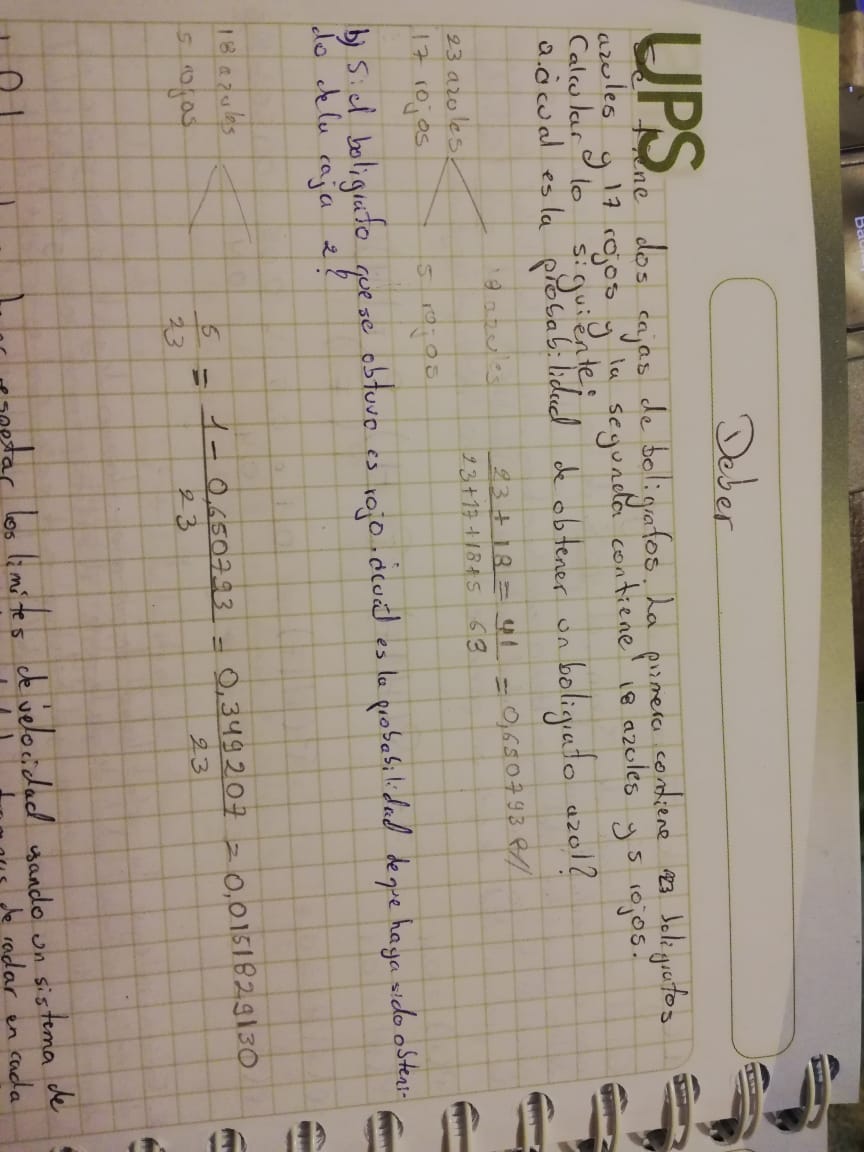 Deber
UPS
Se tiene dos cajas de boligrafos. La primera contiene 23 boligrafos
azules y 17 rojos y la segunda contiene 18 azules y 5 rojos.
Calcular lo siguiente:
a. ¿cual es la probabilidad de obtener un boligrafo azul?
18 azules
23 + 18 = 41 = 0,650793 R//
23+17+18+5 63
23 azules
17 rojos
5 rojos
b) Si el boligrafo que se obtuvo es rojo. ¿cual es la probabilidad de que haya sido obteni-
do de la caja 2?
18 azules
5 rojos
5/23 = 1 - 0,650793/23 = 0,349207/23 = 0,0151829130
respetar los limites de velocidad usando un sistema de
de radar en cada